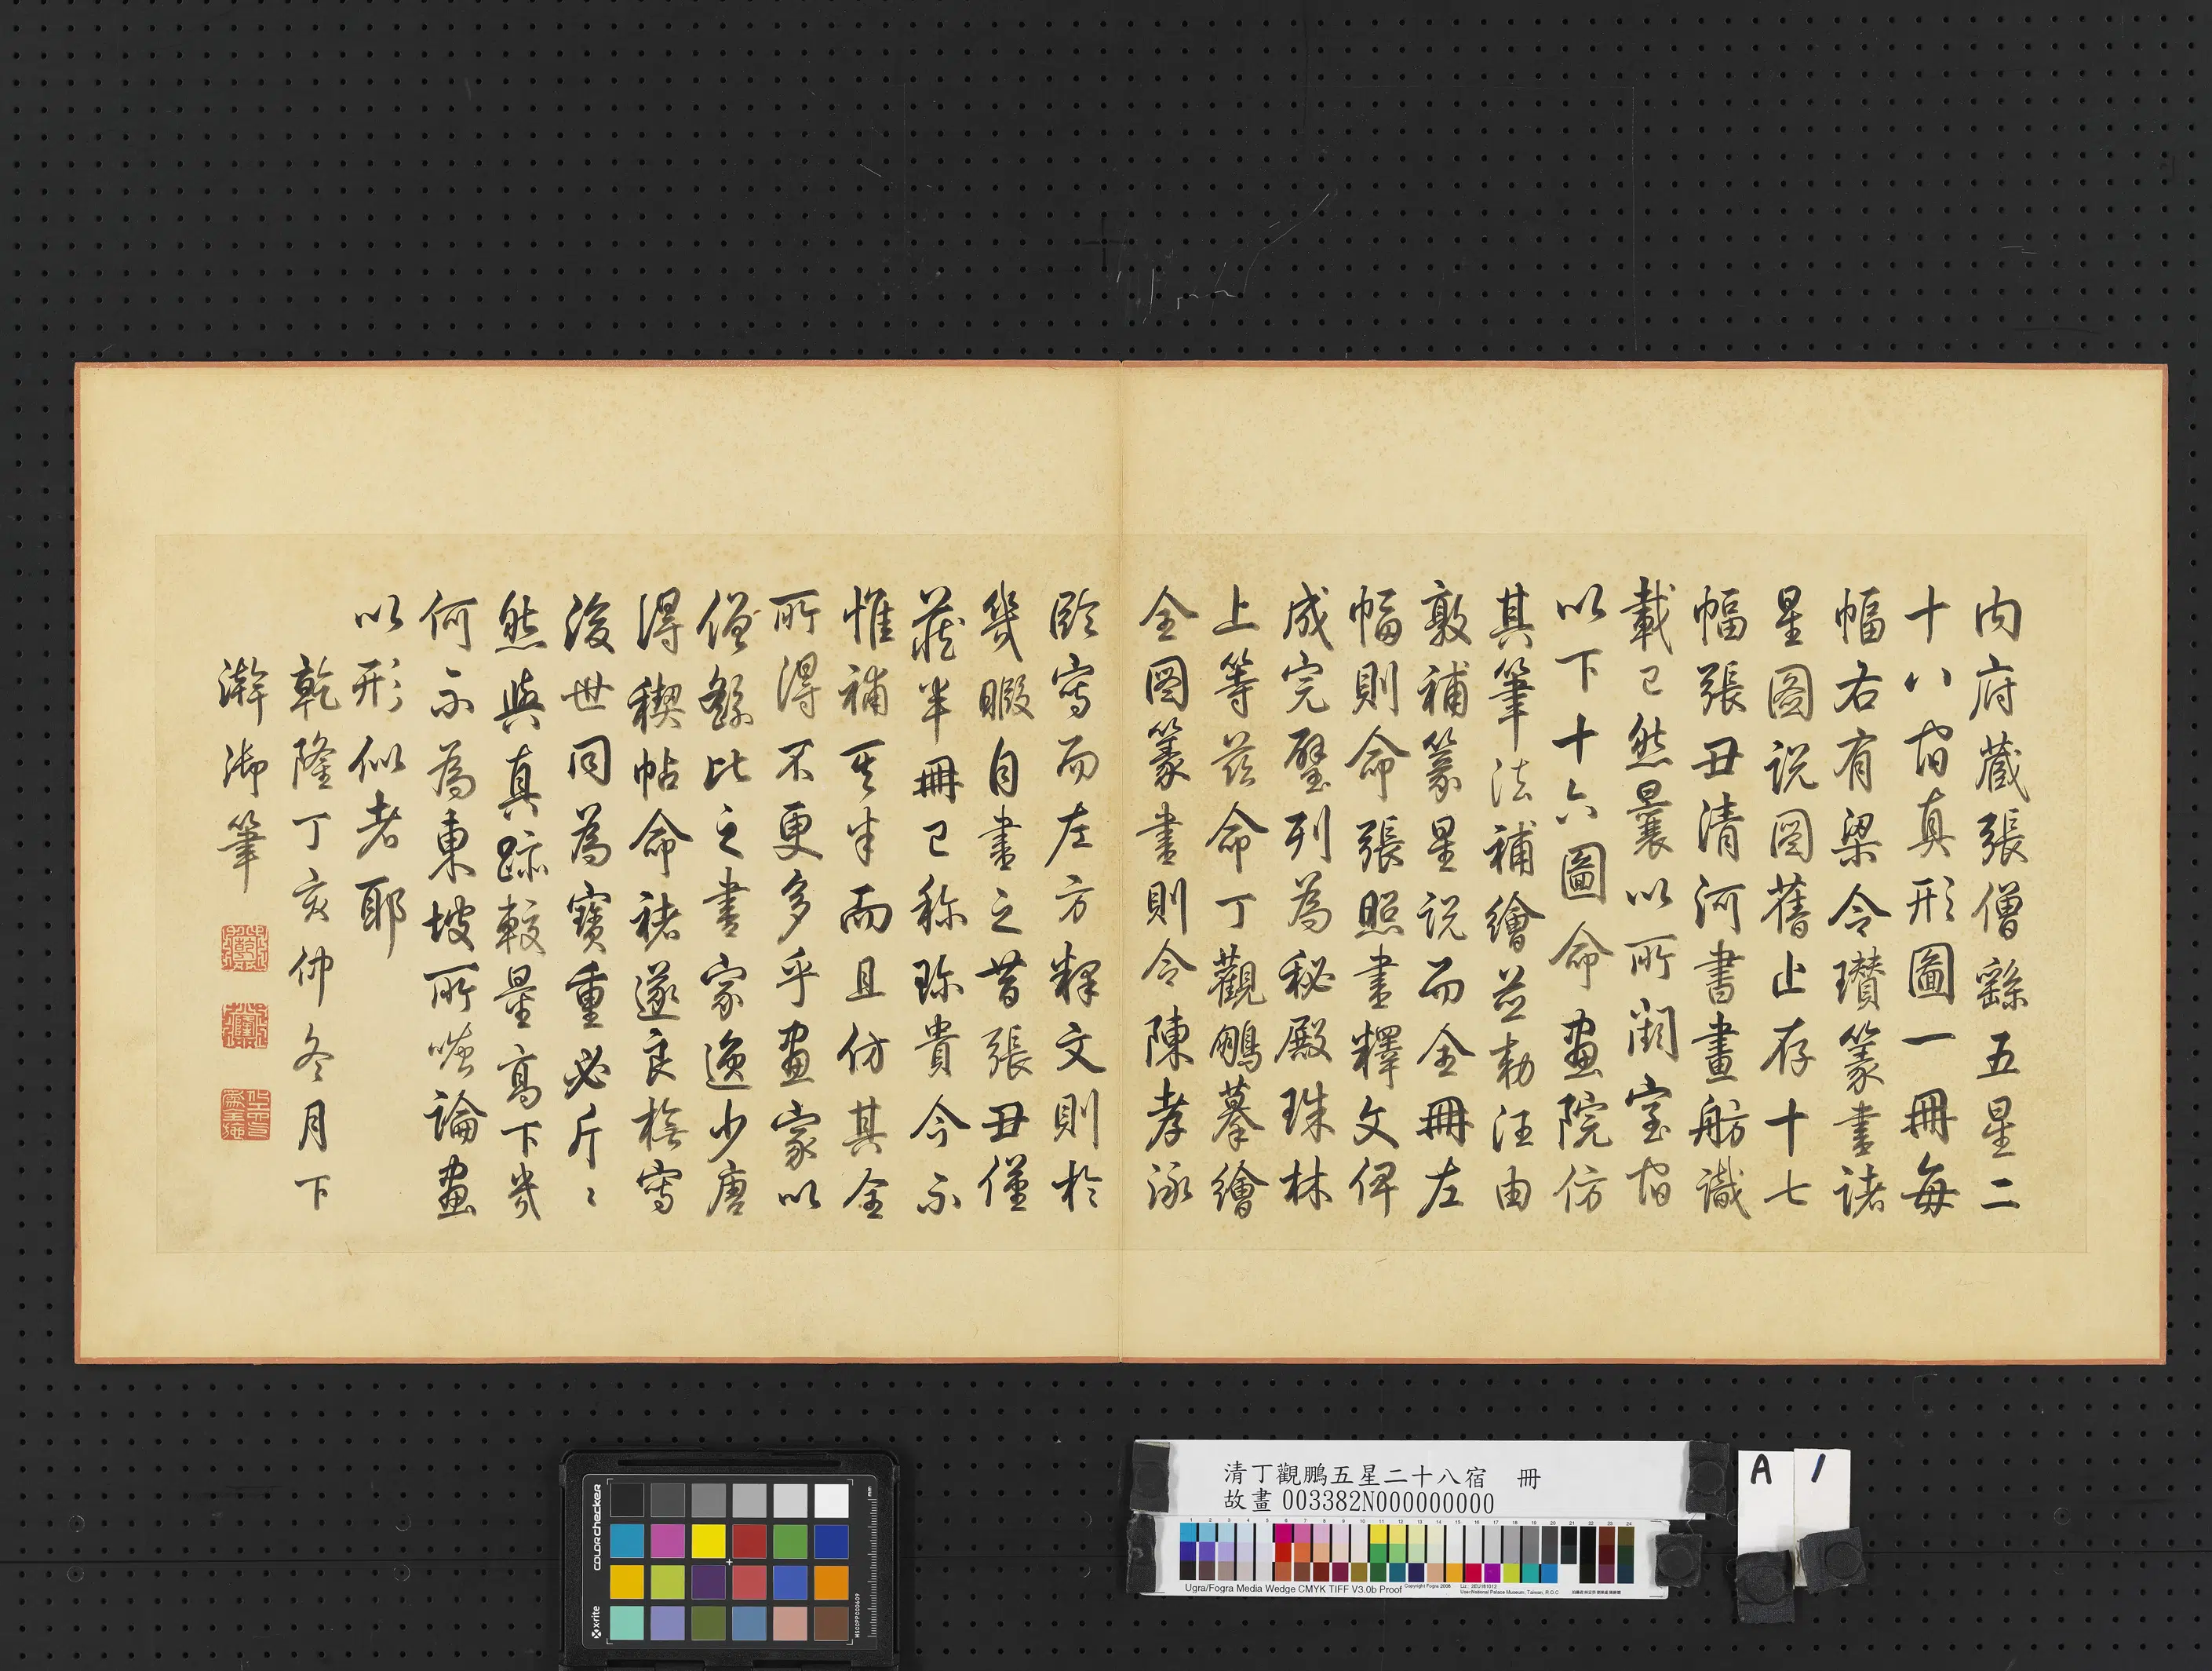 內府藏張僧繇五星二
十八宿真形圖一冊每
幅右有梁令瓚篆書諸
星圖說圖舊止存十七
幅張丑清河書畫舫識
載已然曩以所闕室宿
以下十六圖命畫院仿
其筆法補繪並勅汪由
敦補篆星說而全冊左
幅則命張照書釋文俾
成完璧列為秘殿珠林
上等茲命丁觀鵬摹繪
全圖篆書則令陳孝泳
臨寫而左方釋文則於
幾暇自書之昔張丑僅
藏半冊已稱珍貴今不
惟補其半而且仿其全
所得不更多乎畫家以
僧繇比之書家逸少唐
得稧帖命褚遂良橅寫
後世同為寶重必斤〻
然與真跡較量高下幾
何不為東坡所嗤論畫
以形似者耶
乾隆丁亥仲冬月下
澣御筆
清丁觀鵬五星二十八宿 冊
故畫 003382N000000000
A 1
colorchecker
x·rite
1 2 3 4 5 6 7 8 9 10 11 12 13 14 15 16 17 18 19 20 21 22 23 24
Ugra/Fogra Media Wedge CMYK TIFF V3.0b Proof